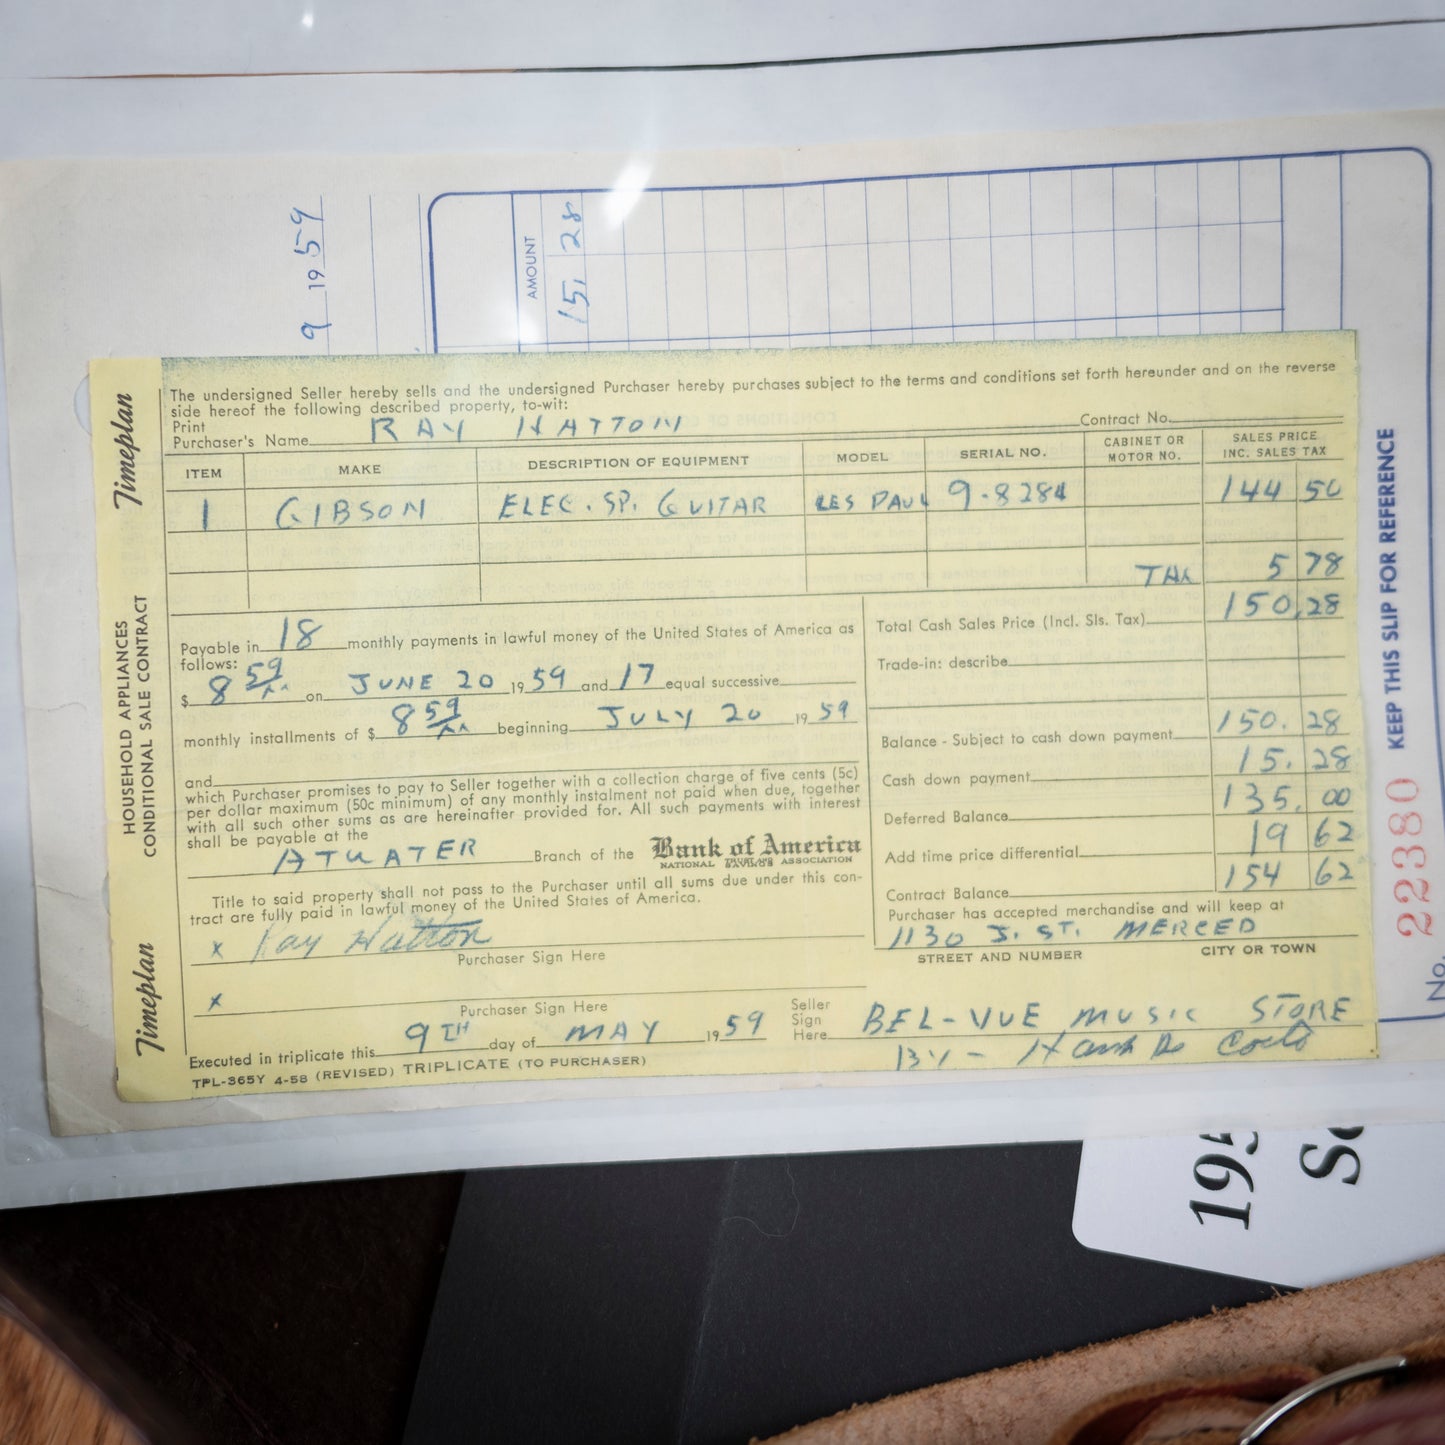 9 1959
AMOUNT
15, 28
Timeplan
HOUSEHOLD APPLIANCES
CONDITIONAL SALE CONTRACT
Timeplan
The undersigned Seller hereby sells and the undersigned Purchaser hereby purchases subject to the terms and conditions set forth hereunder and on the reverse
side hereof the following described property, to-wit:
Print
Purchaser's Name RAY HATTON Contract No.
ITEM MAKE DESCRIPTION OF EQUIPMENT MODEL SERIAL NO. CABINET OR MOTOR NO. SALES PRICE INC. SALES TAX
1 GIBSON ELEC. SP. GUITAR LES PAUL 9-8284 144 50
TAX 5 78
Total Cash Sales Price (Incl. Sls. Tax) 150,28
Trade-in: describe
Balance - Subject to cash down payment 150. 28
Cash down payment 15. 28
Deferred Balance 135. 00
Add time price differential 19 62
Contract Balance 154 62
Payable in 18 monthly payments in lawful money of the United States of America as
follows:
$ 8 59/xx on JUNE 20 1959 and 17 equal successive
monthly installments of $ 8 59/xx beginning JULY 20 1959
and
which Purchaser promises to pay to Seller together with a collection charge of five cents (5c)
per dollar maximum (50c minimum) of any monthly instalment not paid when due, together
with all such other sums as are hereinafter provided for. All such payments with interest
shall be payable at the
ATWATER Branch of the Bank of America
NATIONAL TRUST & SAVINGS ASSOCIATION
Title to said property shall not pass to the Purchaser until all sums due under this con-
tract are fully paid in lawful money of the United States of America.
x Ray Hatton
Purchaser Sign Here
x
Purchaser Sign Here
Purchaser has accepted merchandise and will keep at
1130 J. ST. MERCED
STREET AND NUMBER CITY OR TOWN
Seller
Sign
Here BEL-VUE MUSIC STORE
BY - Hank
Executed in triplicate this 9TH day of MAY 1959
TPL-365Y 4-58 (REVISED) TRIPLICATE (TO PURCHASER)
KEEP THIS SLIP FOR REFERENCE
No. 22380
195
Se